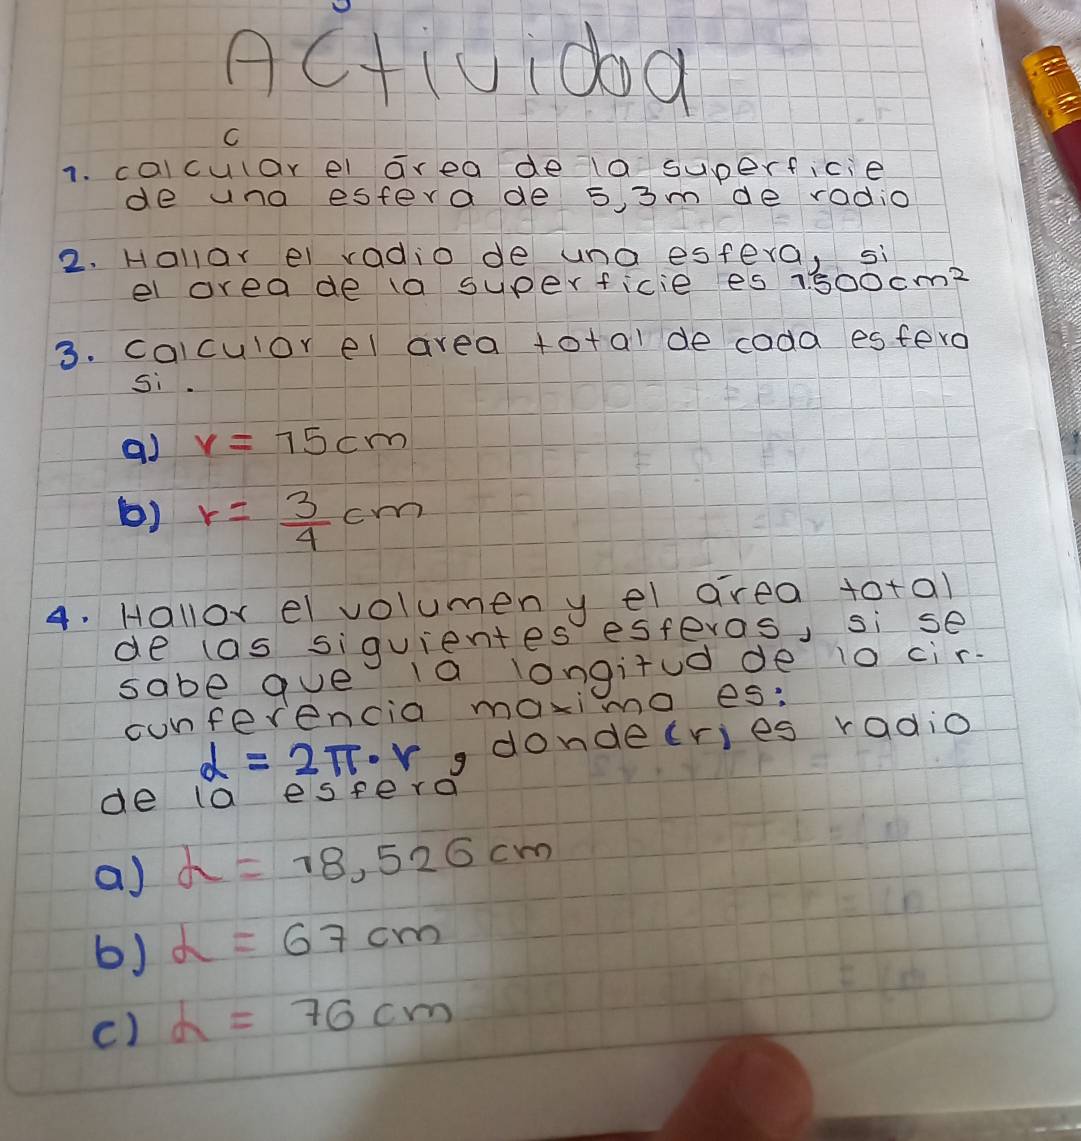 Actividad
c
1. calcular el área de la superficie
de una esfera de 5,3m de radio
2. Hallar el radio de una esfera, si
el area de la superficie es 1500cm²
3. calcular el area total de cada esfera
si.
a) r = 15cm
b) r = 3/4 cm
4. Hallar el volumen y el área total
de las siguientes esferas, si se
sabe que la longitud de la cir-
cunferencia maxima es:
L = 2π·r, donde (r) es radio
de la esfera
a) L = 18,526 cm
b) L = 67 cm
c) L = 76 cm